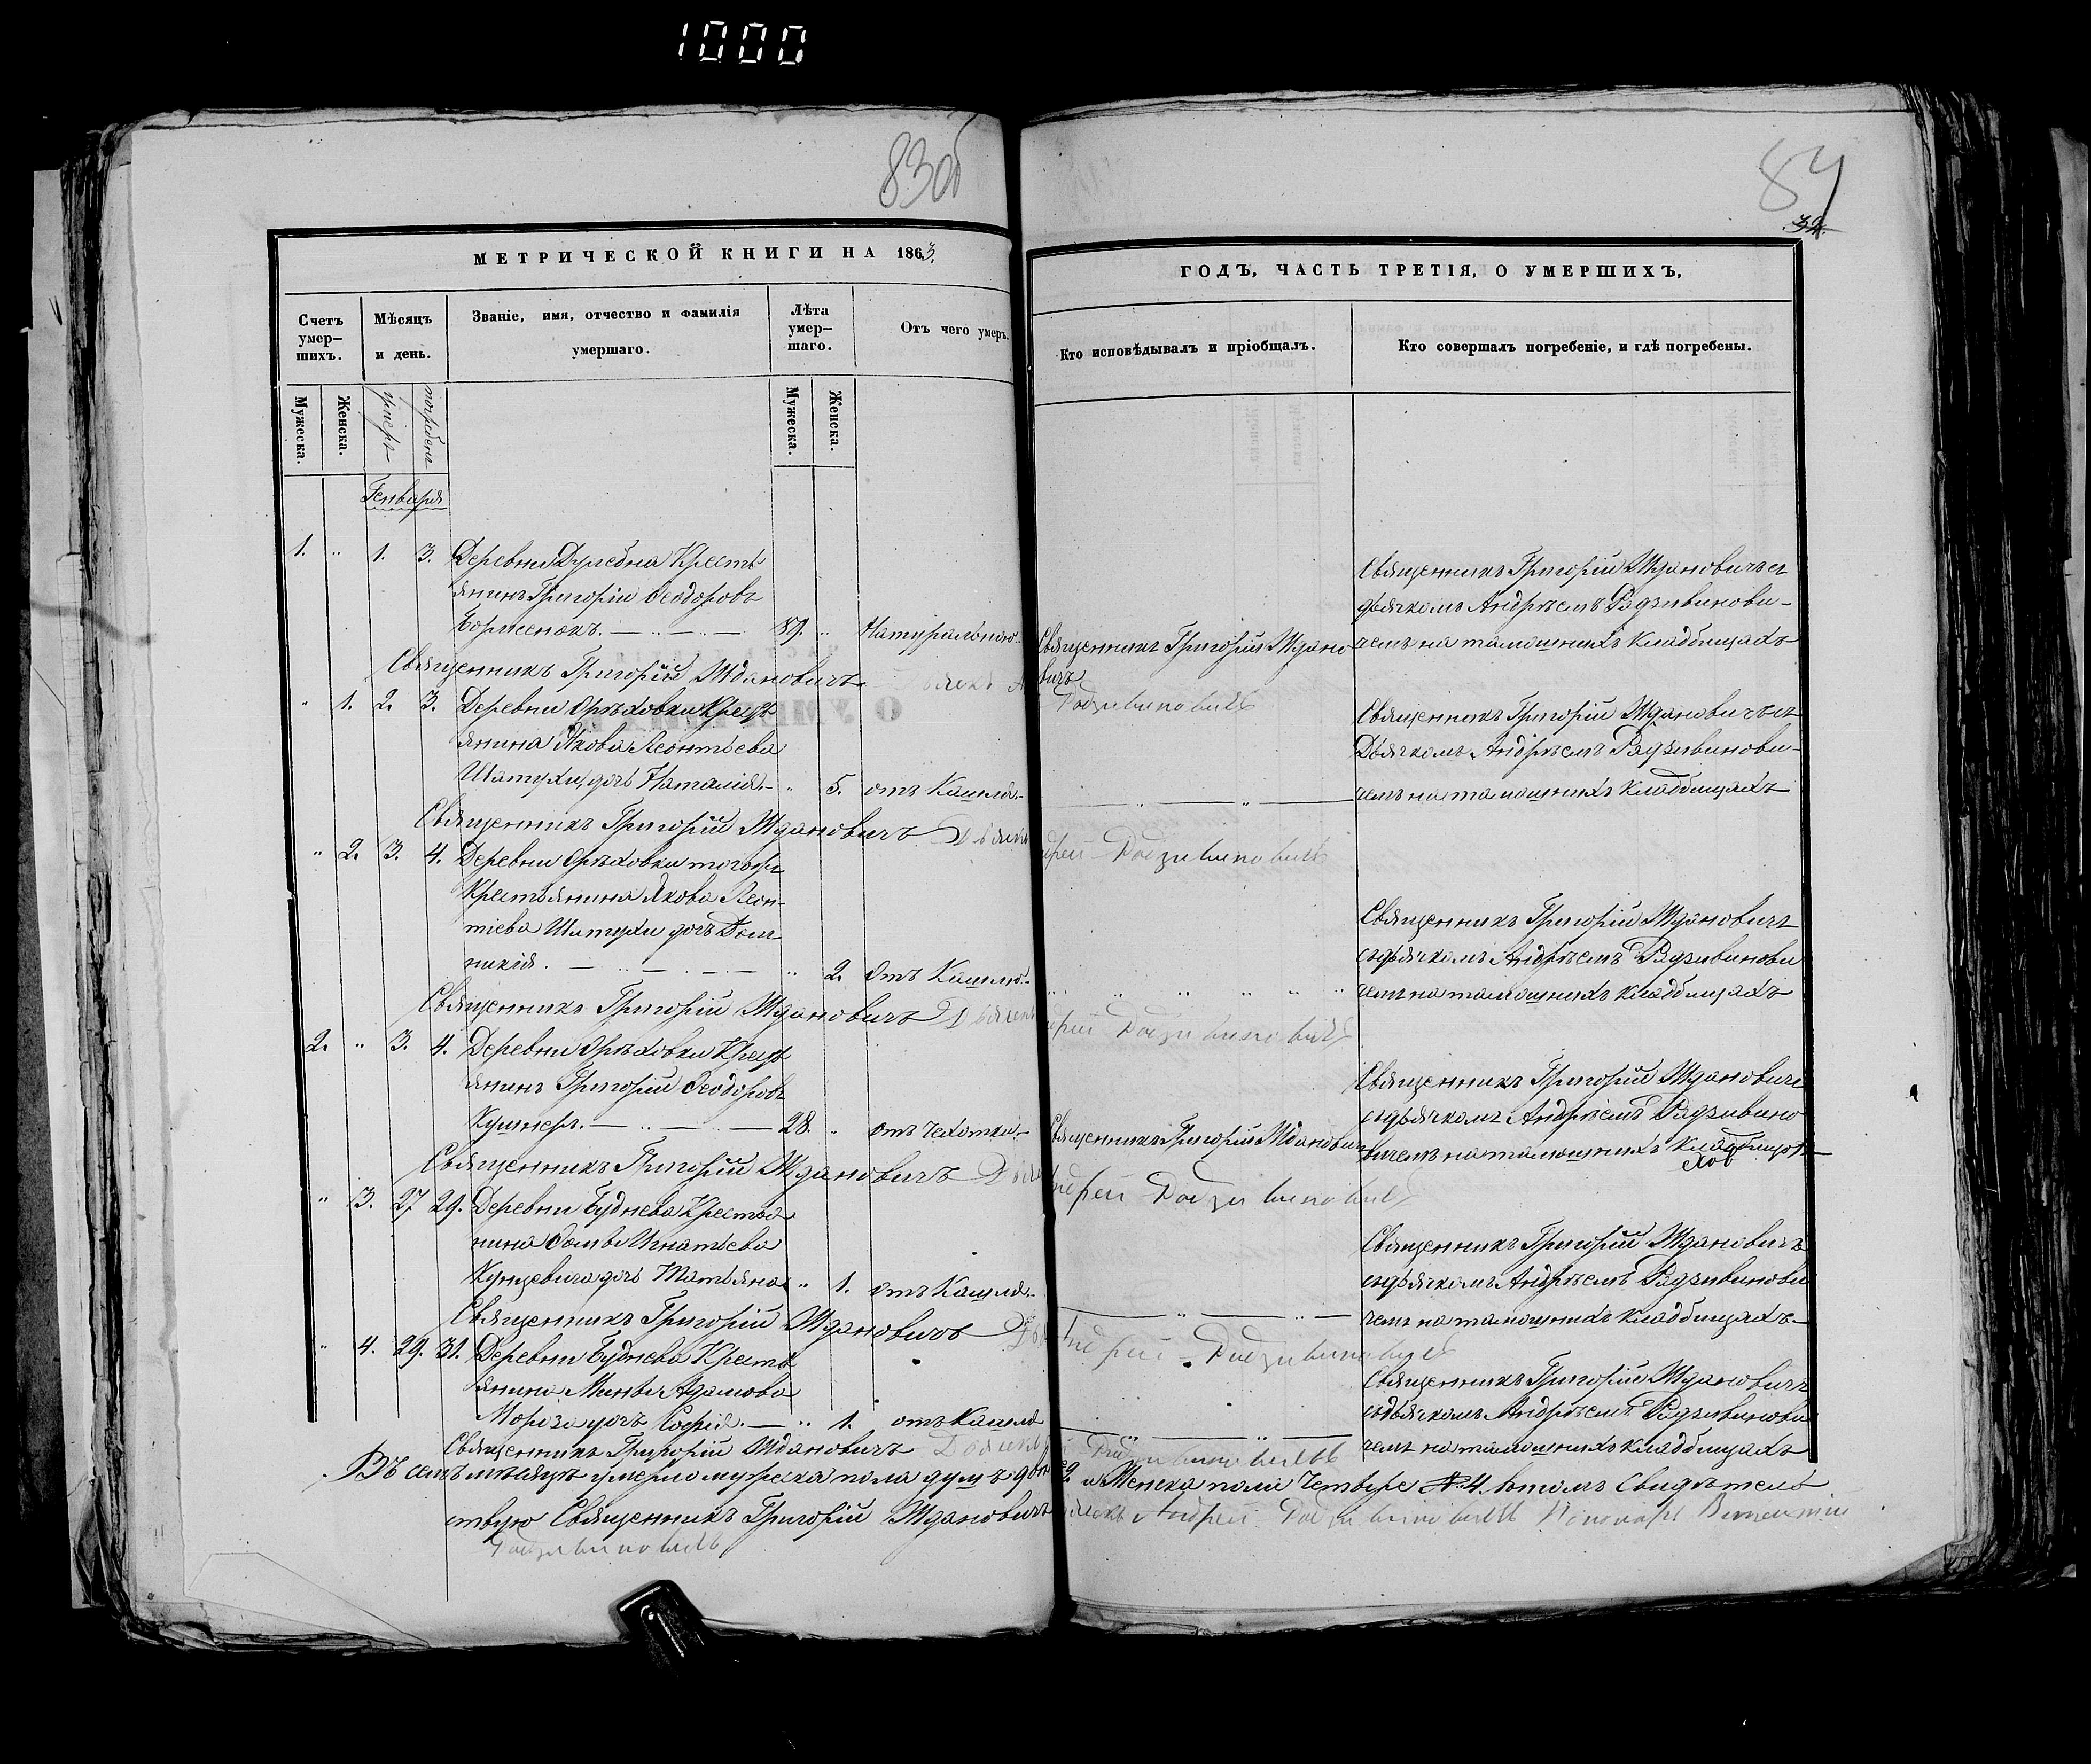 1000
83об
84
МЕТРИЧЕСКОЙ КНИГИ НА 1863.
ГОДЪ, ЧАСТЬ ТРЕТІЯ, О УМЕРШИХЪ,
Счетъ умер-
шихъ.
Мѣсяцъ
и день.
Званіе, имя, отчество и фамилія
умершаго.
Лѣта
умер-
шаго.
Отъ чего умеръ.
Кто исповѣдывалъ и пріобщалъ.
Кто совершалъ погребеніе, и гдѣ погребены.
Мужеска.
Женска.
умеръ
погребенъ
Мужеска.
Женска.
Генваря
1. „ 1. 3. Деревни Дулебна Кресть
янинъ Григорій Ѳеодоровъ
Борисенокъ. 89. „ Натурально.
Священникъ Григорій Ждано
вичъ
Священникъ Григорій Ждановичъ съ
дьячкомъ Андреемъ Радзивинови-
чемъ на тамошнихъ кладбищахъ
Священникъ Григорій Ждановичъ
Радзивиновичъ
„ 1. 2. 3. Деревни Орѣховки Кресть
янина Якова Леонтьева
Шатухи, дочь Наталія. „ 5. отъ Кашля.
Священникъ Григорій Ждановичъ съ
Дьячкомъ Андреемъ Радзивинови-
чемъ на тамошнихъ кладбищахъ
Священникъ Григорій Ждановичъ Дьячекъ Андрей Радзивиновичъ
„ 2. 3. 4. Деревни Орѣховки тогожъ
Крестьянина Якова Леон-
тіева Шатухи дочь Дом-
никія. „ 2. Отъ Кашлю.
Священникъ Григорій Ждановичъ
съ дьячкомъ Андреемъ Радзивинови
чемъ на тамошнихъ кладбищахъ
Священникъ Григорій Ждановичъ Дьячекъ Андрей Радзивиновичъ
2. „ 3. 4. Деревни Орѣховки Кресть
янинъ Григорій Ѳеодоровъ
Кушнеръ. 28. „ отъ чехотки.
Священникъ Григорій Ждановичъ
Священникъ Григорій Ждановичъ
съ дьячкомъ Андреемъ Радзивино
вичемъ на тамошнихъ кладбищахъ
Священникъ Григорій Ждановичъ Дьячекъ Андрей Радзивиновичъ
„ 3. 27 29. Деревни Буднева Крестья
нина Ѳомы Игнатьева
Кунцевича дочь Татьяна „ 1. отъ Кашля.
Священникъ Григорій Ждановичъ
съ дьячкомъ Андреемъ Радзивинови
чемъ на тамошнихъ кладбищахъ.
Священникъ Григорій Ждановичъ Дьячекъ Андрей Радзивиновичъ
„ 4. 29. 31. Деревни Буднева Кресть
янина Мины Адамова
Мороза дочь Софія. „ 1. отъ Кашля
Священникъ Григорій Ждановичъ
съ дьячкомъ Андреемъ Радзивинови
чемъ на тамошнихъ кладбищахъ
Священникъ Григорій Ждановичъ Дьячекъ Радзивиновичъ
Въ семъ мѣсяцѣ умерло мужеска пола душъ двѣ 2. и Женска пола Четыре 4. въ томъ Свидѣтель
ствую Священникъ Григорій Ждановичъ Дьячекъ Андрей Радзивиновичъ Пономарь
Радзивиновичъ